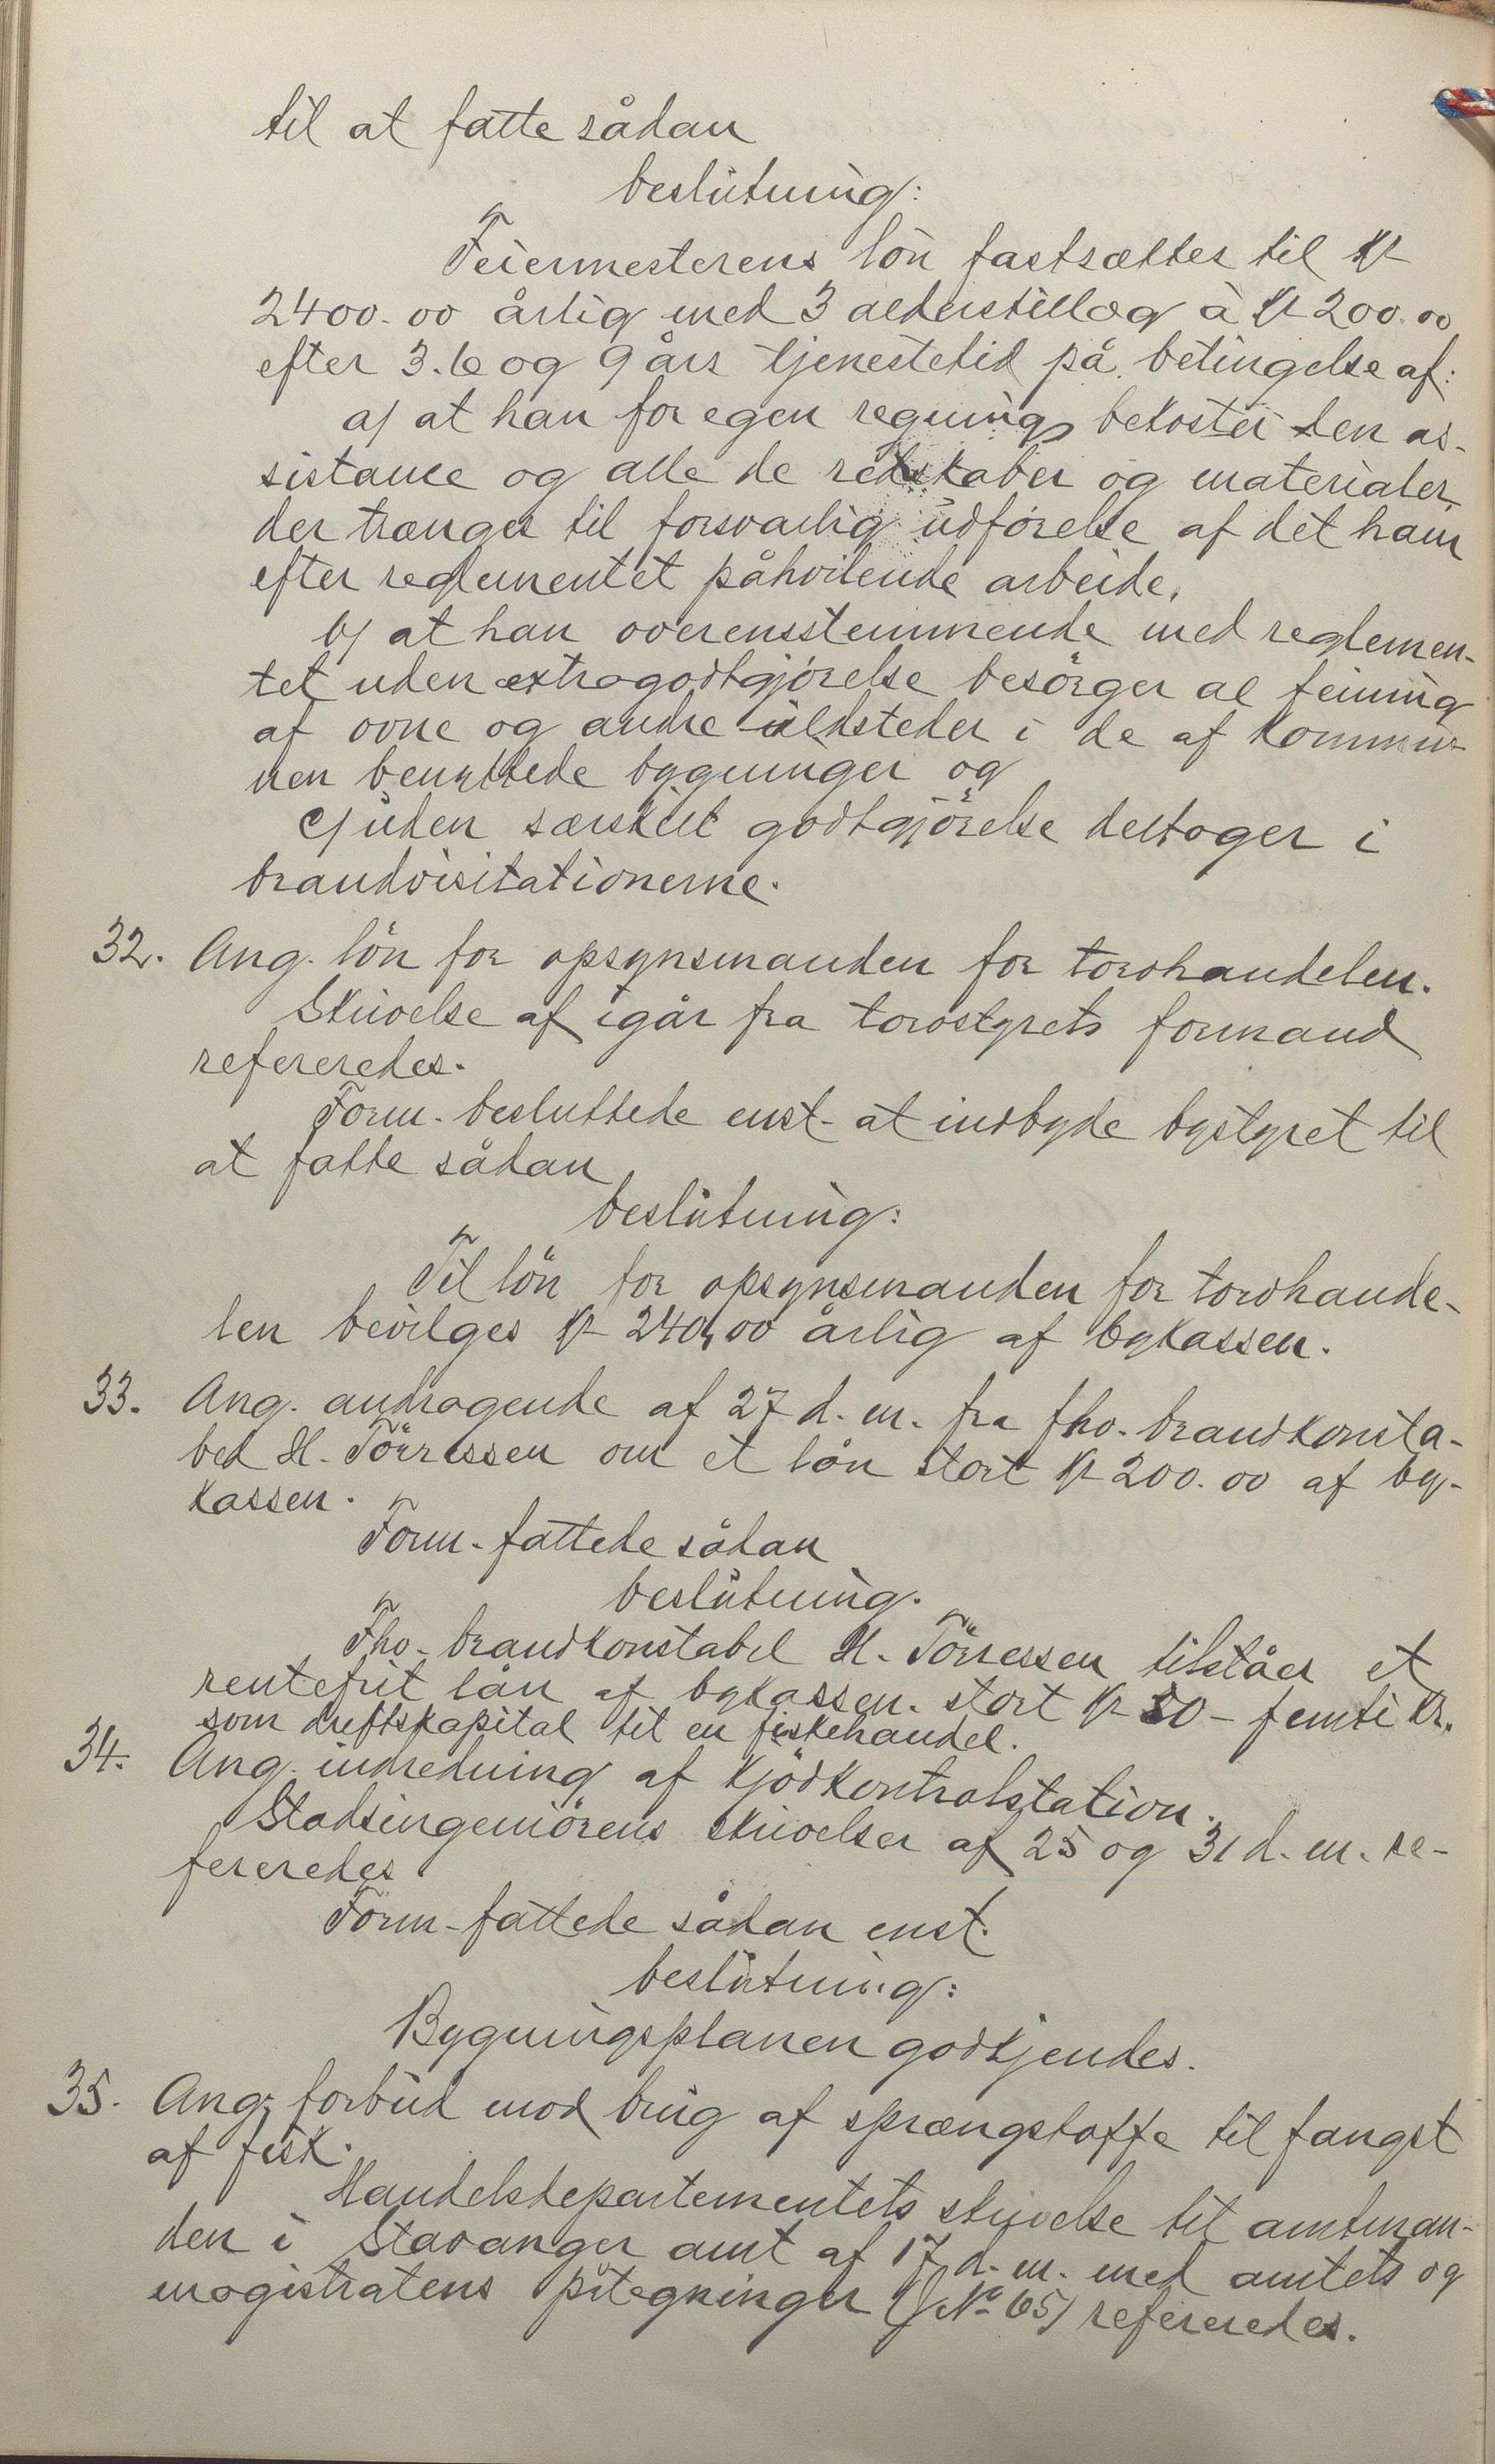 til at fatte sådan
beslutning:
Feiermesterens lön fastsættes til kr
2400.00 årlig med 3 alderstillæg à kr 200.00
efter 3. 6 og 9 års tjenestetid på betingelse af:
a) at han for egen regning bekoster den as-
sistance og alle de redskaber og materialer
der trænges til forsvarlig udförelse af det ham
efter reglementet påhvilende arbeide,
b) at han overensstemmende med reglemen-
tet uden extragodtgjörelse besörger al feining
af ovne og andre ildsteder i de af kommu-
nen benyttede bygninger og
c) uden særskilt godtgjörelse deltager i
brandvisitationerne.
32. Ang. lön for opsynsmanden for torvhandelen.
Skrivelse af igår fra torvstyrets formand
refereredes.
Form. besluttede enst. at indbyde bystyret til
at fatte sådan
beslutning:
Til lön for opsynsmanden for torvhande-
len bevilges kr 240,00 årlig af bykassen.
33. Ang. andragende af 27 d. m. fra fhv. brandkonsta-
bel H. Törressen om et lån stort kr 200.00 af by-
kassen.
Form. fattede sådan
beslutning.
Fhv. brandkonstabel H. Törressen tilståes et
rentefrit lån af bykassen. stort kr 50 - femti kr.
som driftskapital til en fiskehandel.
34. Ang. indredning af kjödkontrolstation.
Stadsingeniörens skrivelser af 25 og 31 d. m. re-
fereredes
Form. fattede sådan enst.
beslutning:
Bygningsplanen godkjendes.
35. Ang. forbud mod brug af sprængstoffe til fangst
af fisk.
Handelsdepartementets skrivelse til amtman-
den i Stavanger amt af 17 d. m. med amtets og
magistratens påtegninger (J No 65) refereredes.